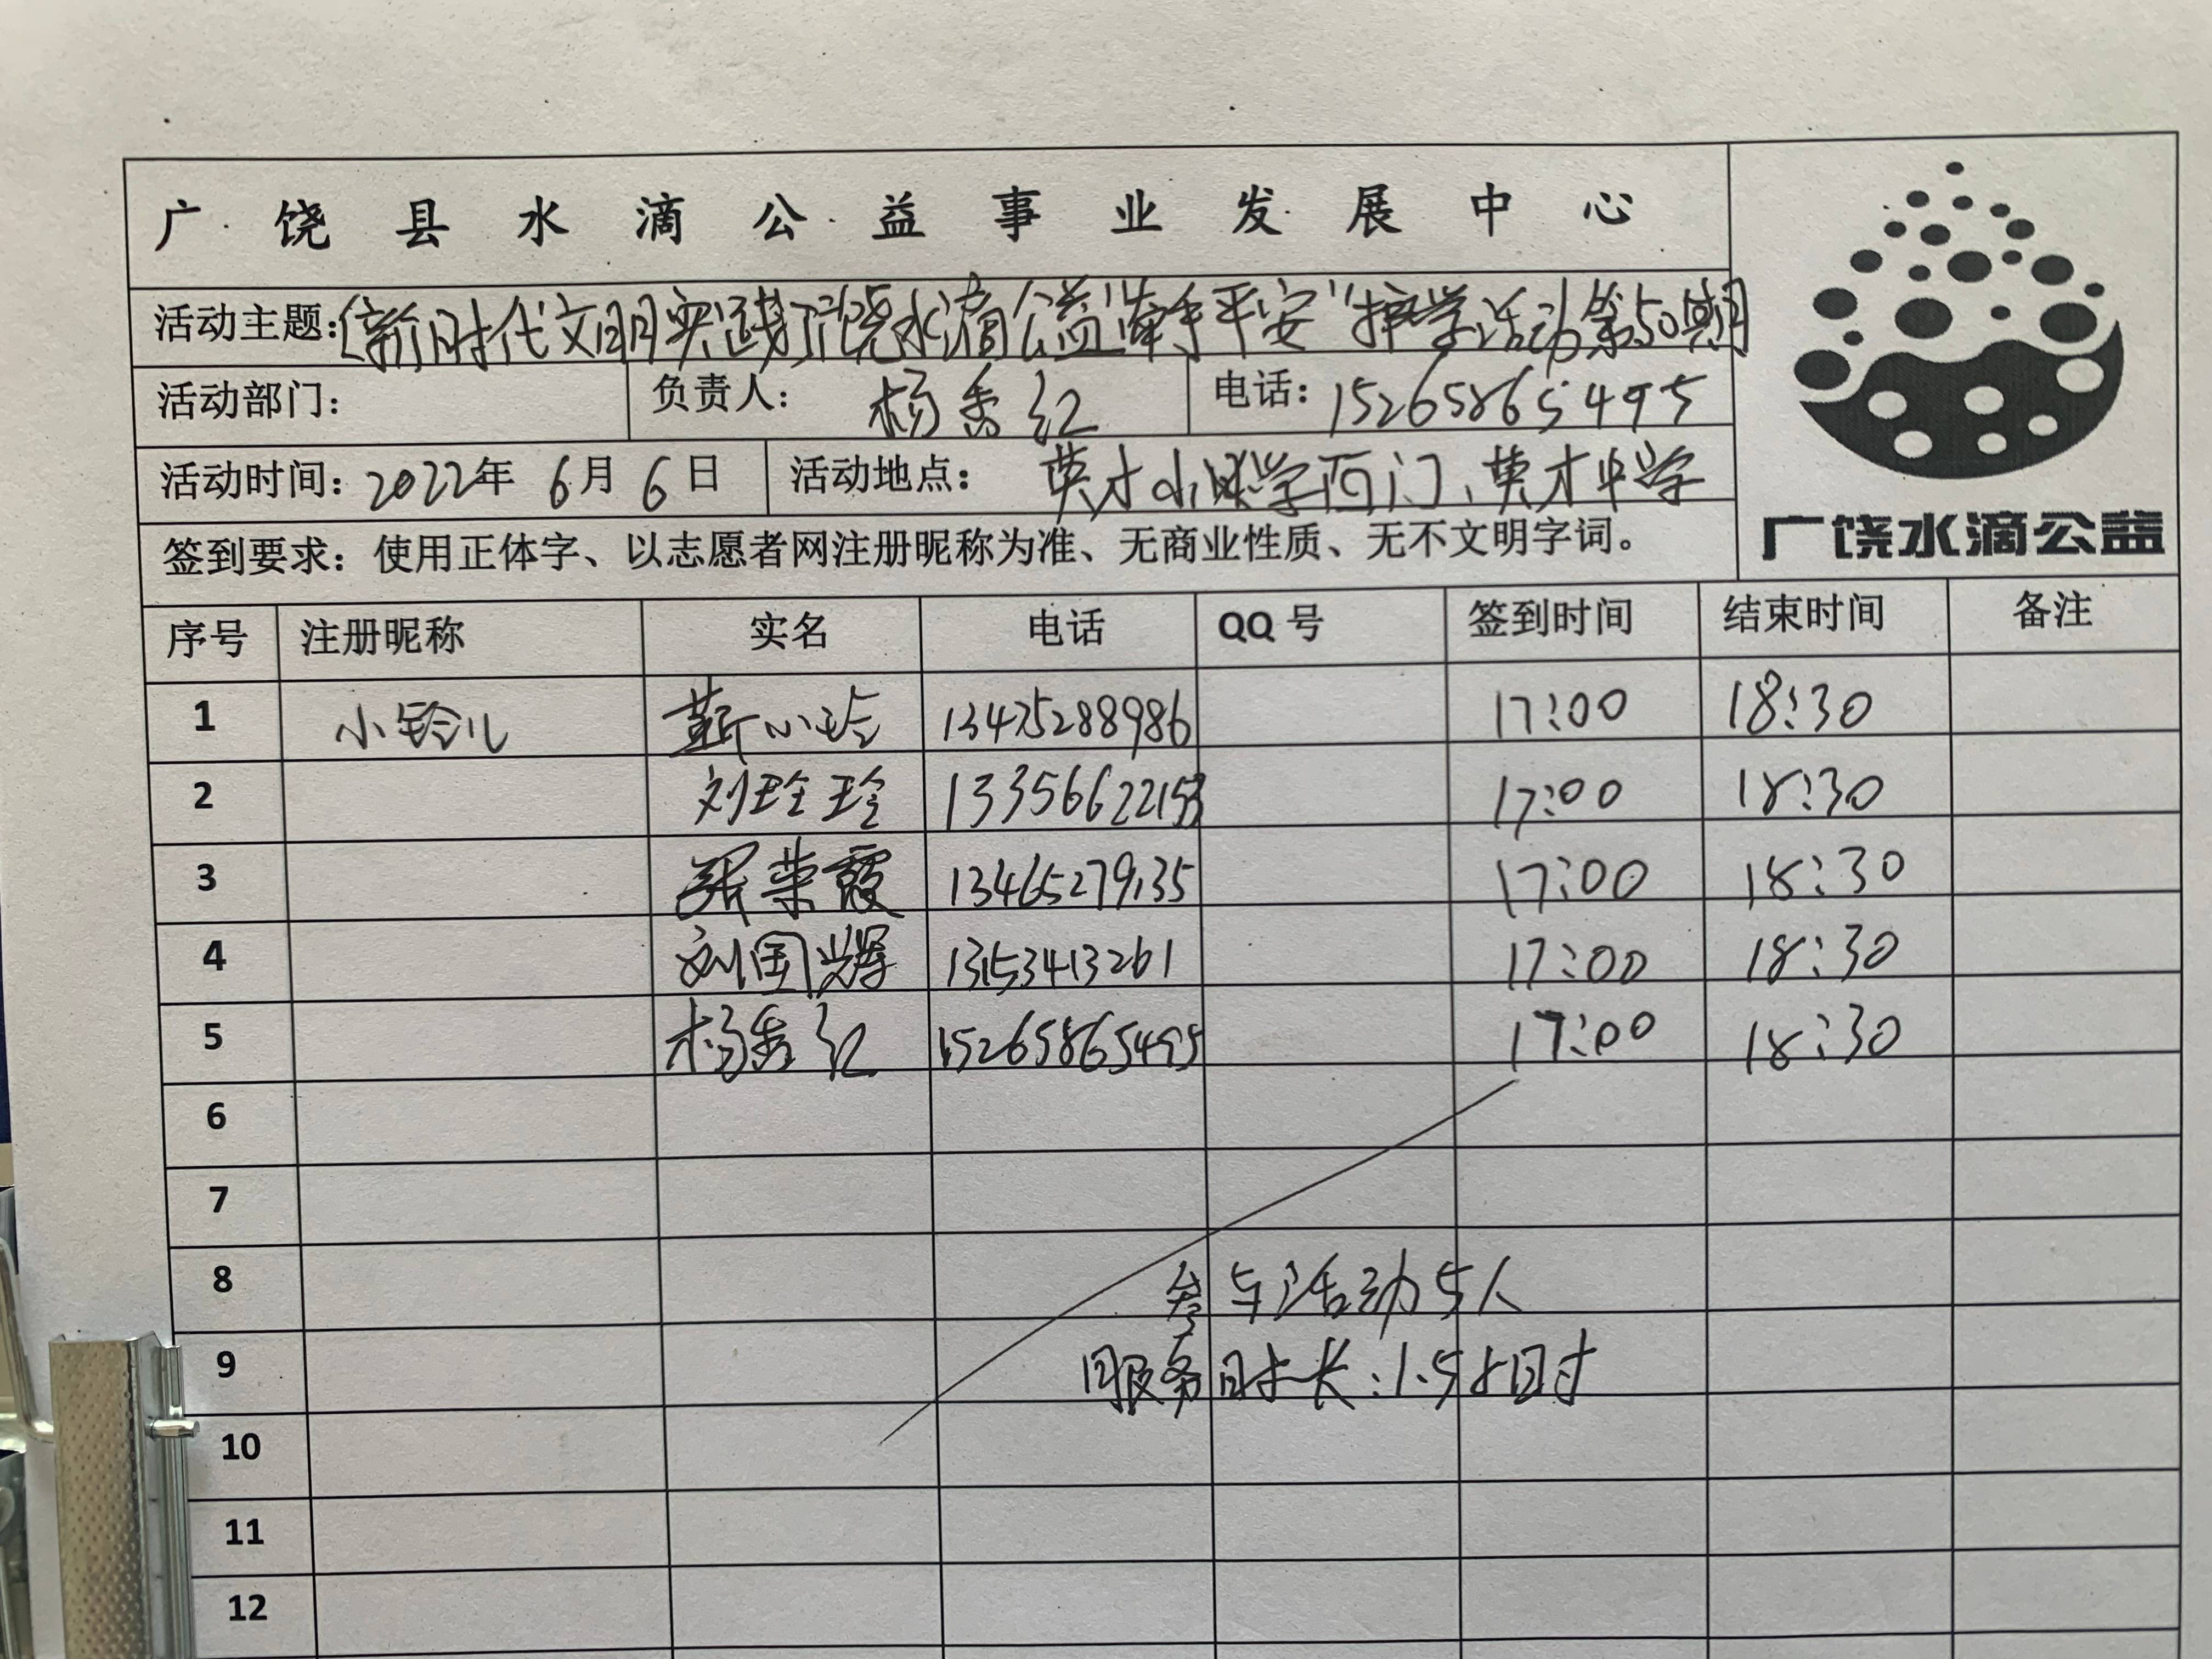 广饶县水滴公益事业发展中心
活动主题:(新时代文明实践)广饶水滴公益"牵手平安"护学活动第50期
活动部门: 负责人: 杨秀红 电话: 15265865495
活动时间: 2022年 6月 6日 活动地点: 英才小学西门、英才中学
签到要求: 使用正体字、以志愿者网注册昵称为准、无商业性质、无不文明字词。
广饶水滴公益
序号 注册昵称 实名 电话 QQ号 签到时间 结束时间 备注
1 小铃儿 靳小玲 13475288986 17:00 18:30
2 刘玲玲 13356622153 17:00 18:30
3 张荣霞 13465279135 17:00 18:30
4 刘国辉 13153413261 17:00 18:30
5 杨秀红 15265865495 17:00 18:30
6
7
8 参与活动5人
9 服务时长:1.5小时
10
11
12